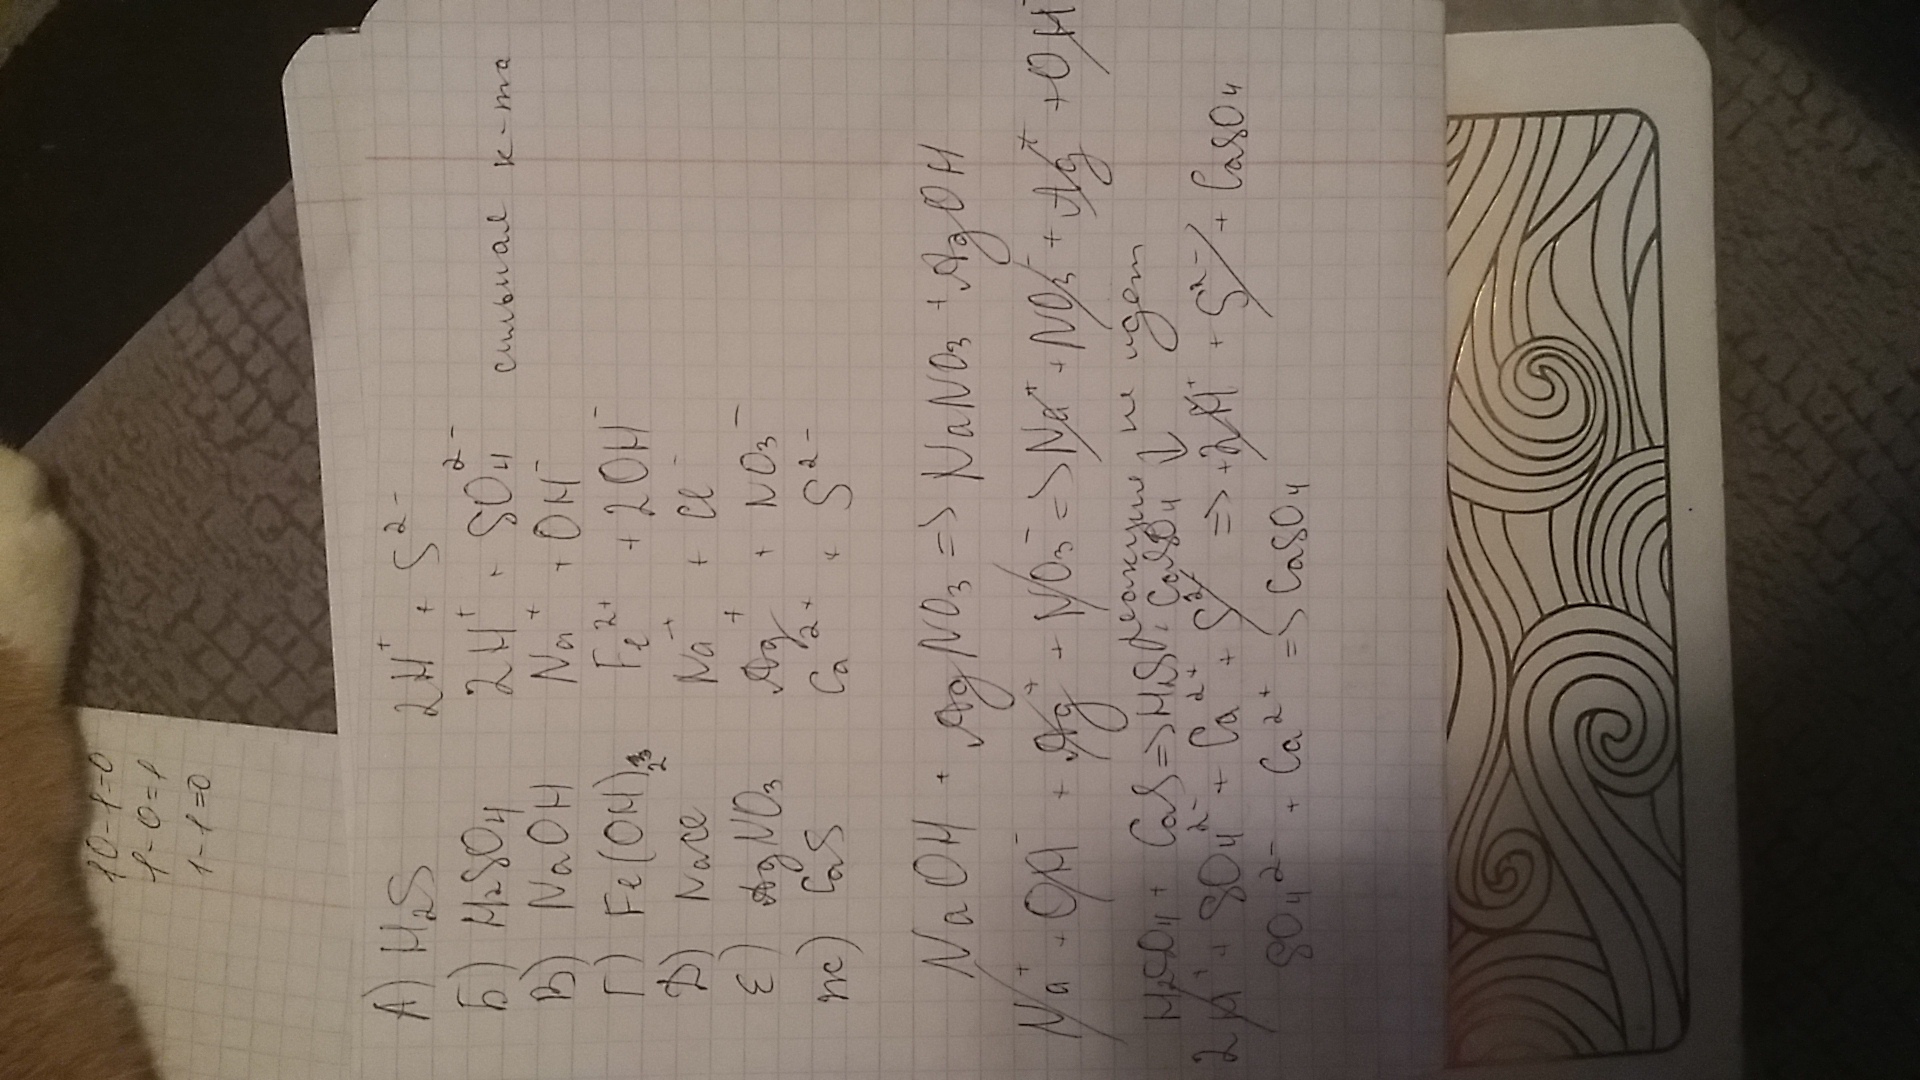 10-1=0
1-0=1
1-1=0
А) H₂S 2H⁺ + S²⁻
Б) H₂SO₄ 2H⁺ + SO₄²⁻ сильная к-та
В) NaOH Na⁺ + OH⁻
Г) Fe(OH)₂ Fe²⁺ + 2OH⁻
Д) NaCl Na⁺ + Cl⁻
Е) AgNO₃ Ag⁺ + NO₃⁻
ж) CaS Ca²⁺ + S²⁻
NaOH + AgNO₃ => NaNO₃ + AgOH
Na⁺ + OH⁻ + Ag⁺ + NO₃⁻ => Na⁺ + NO₃⁻ + Ag⁺ + OH⁻
реакция не идет
H₂SO₄ + CaS => H₂S + CaSO₄ ↓
2H⁺ + SO₄²⁻ + Ca²⁺ + S²⁻ => +2H⁺ + S²⁻ + CaSO₄
SO₄²⁻ + Ca²⁺ => CaSO₄